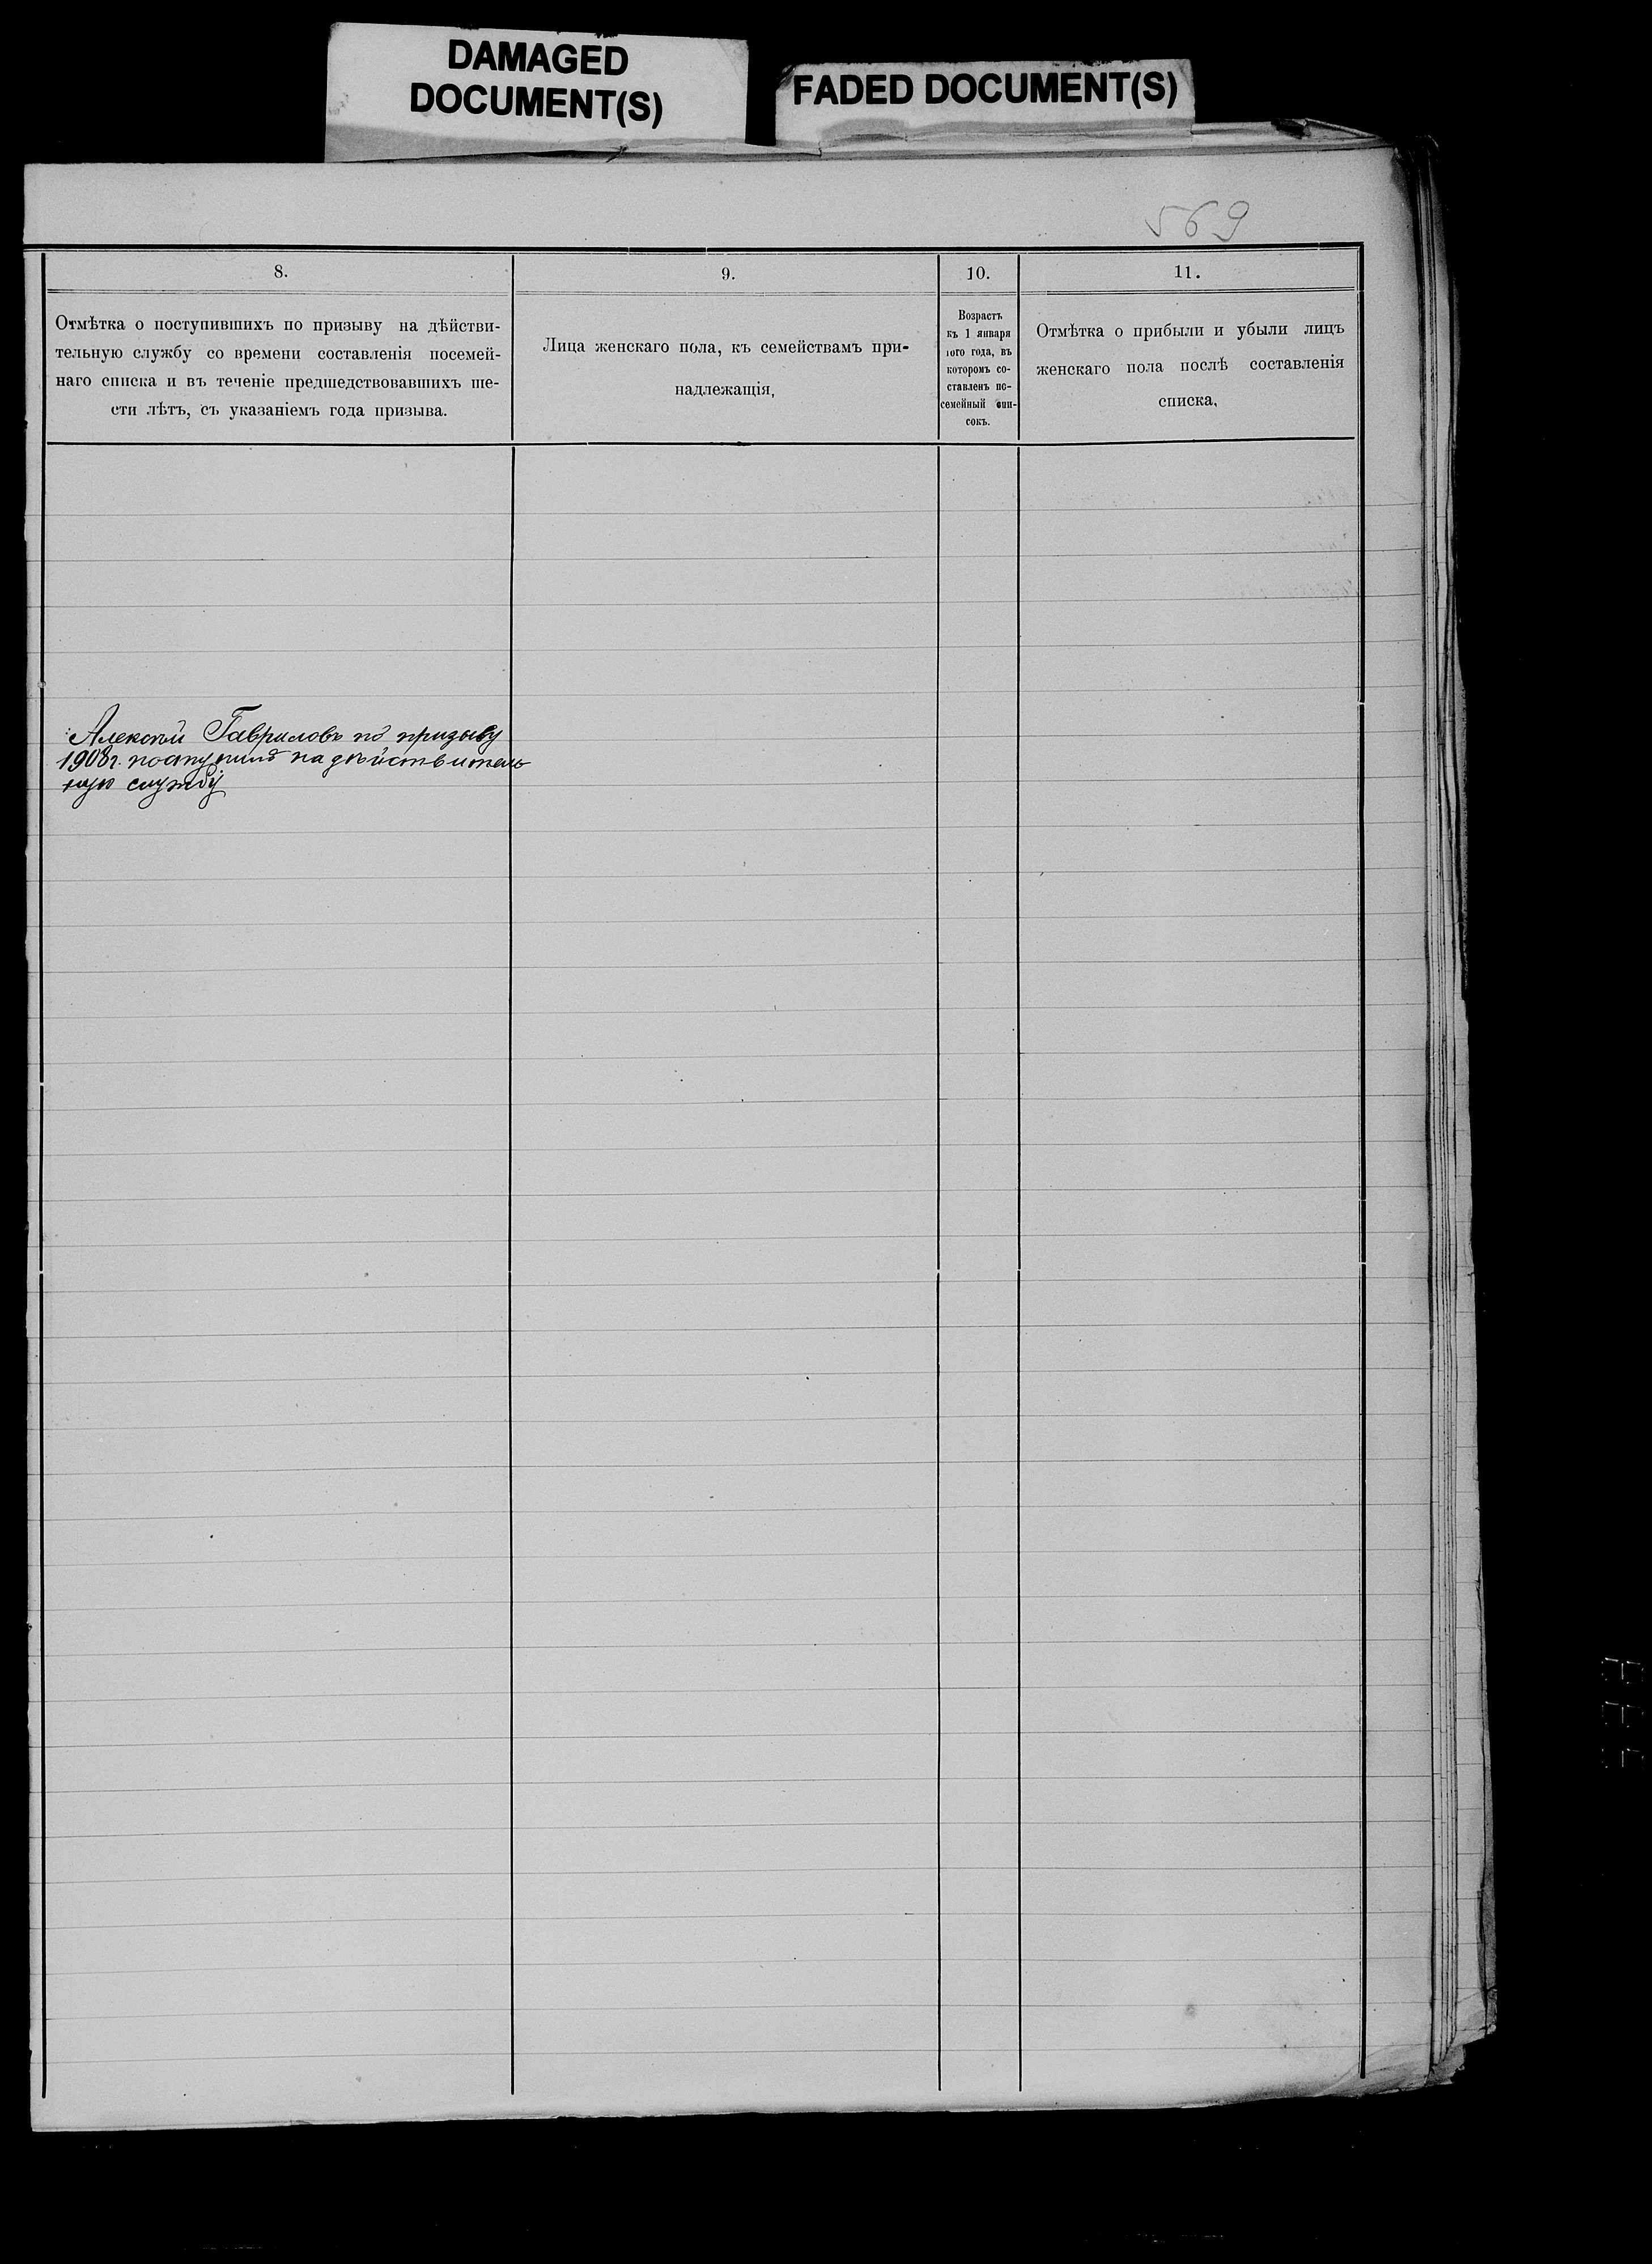 DAMAGED
DOCUMENT(S)
FADED DOCUMENT(S)
569
8.
Отмѣтка о поступившихъ по призыву на дѣйстви-
тельную службу со времени составленія посемей-
наго списка и въ теченіе предшедствовавшихъ ше-
сти лѣтъ, съ указаніемъ года призыва.
9.
Лица женскаго пола, къ семействамъ при-
надлежащія,
10.
Возрастъ
къ 1 января
того года, въ
которомъ со-
ставленъ по-
семейный спи-
сокъ.
11.
Отмѣтка о прибыли и убыли лицъ
женскаго пола послѣ составленія
списка,
Алексѣй Гавриловъ по призыву
1908г. поступилъ на дѣйствитель
ную службу